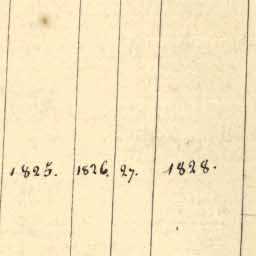 1825. 1826. 27. 1828.